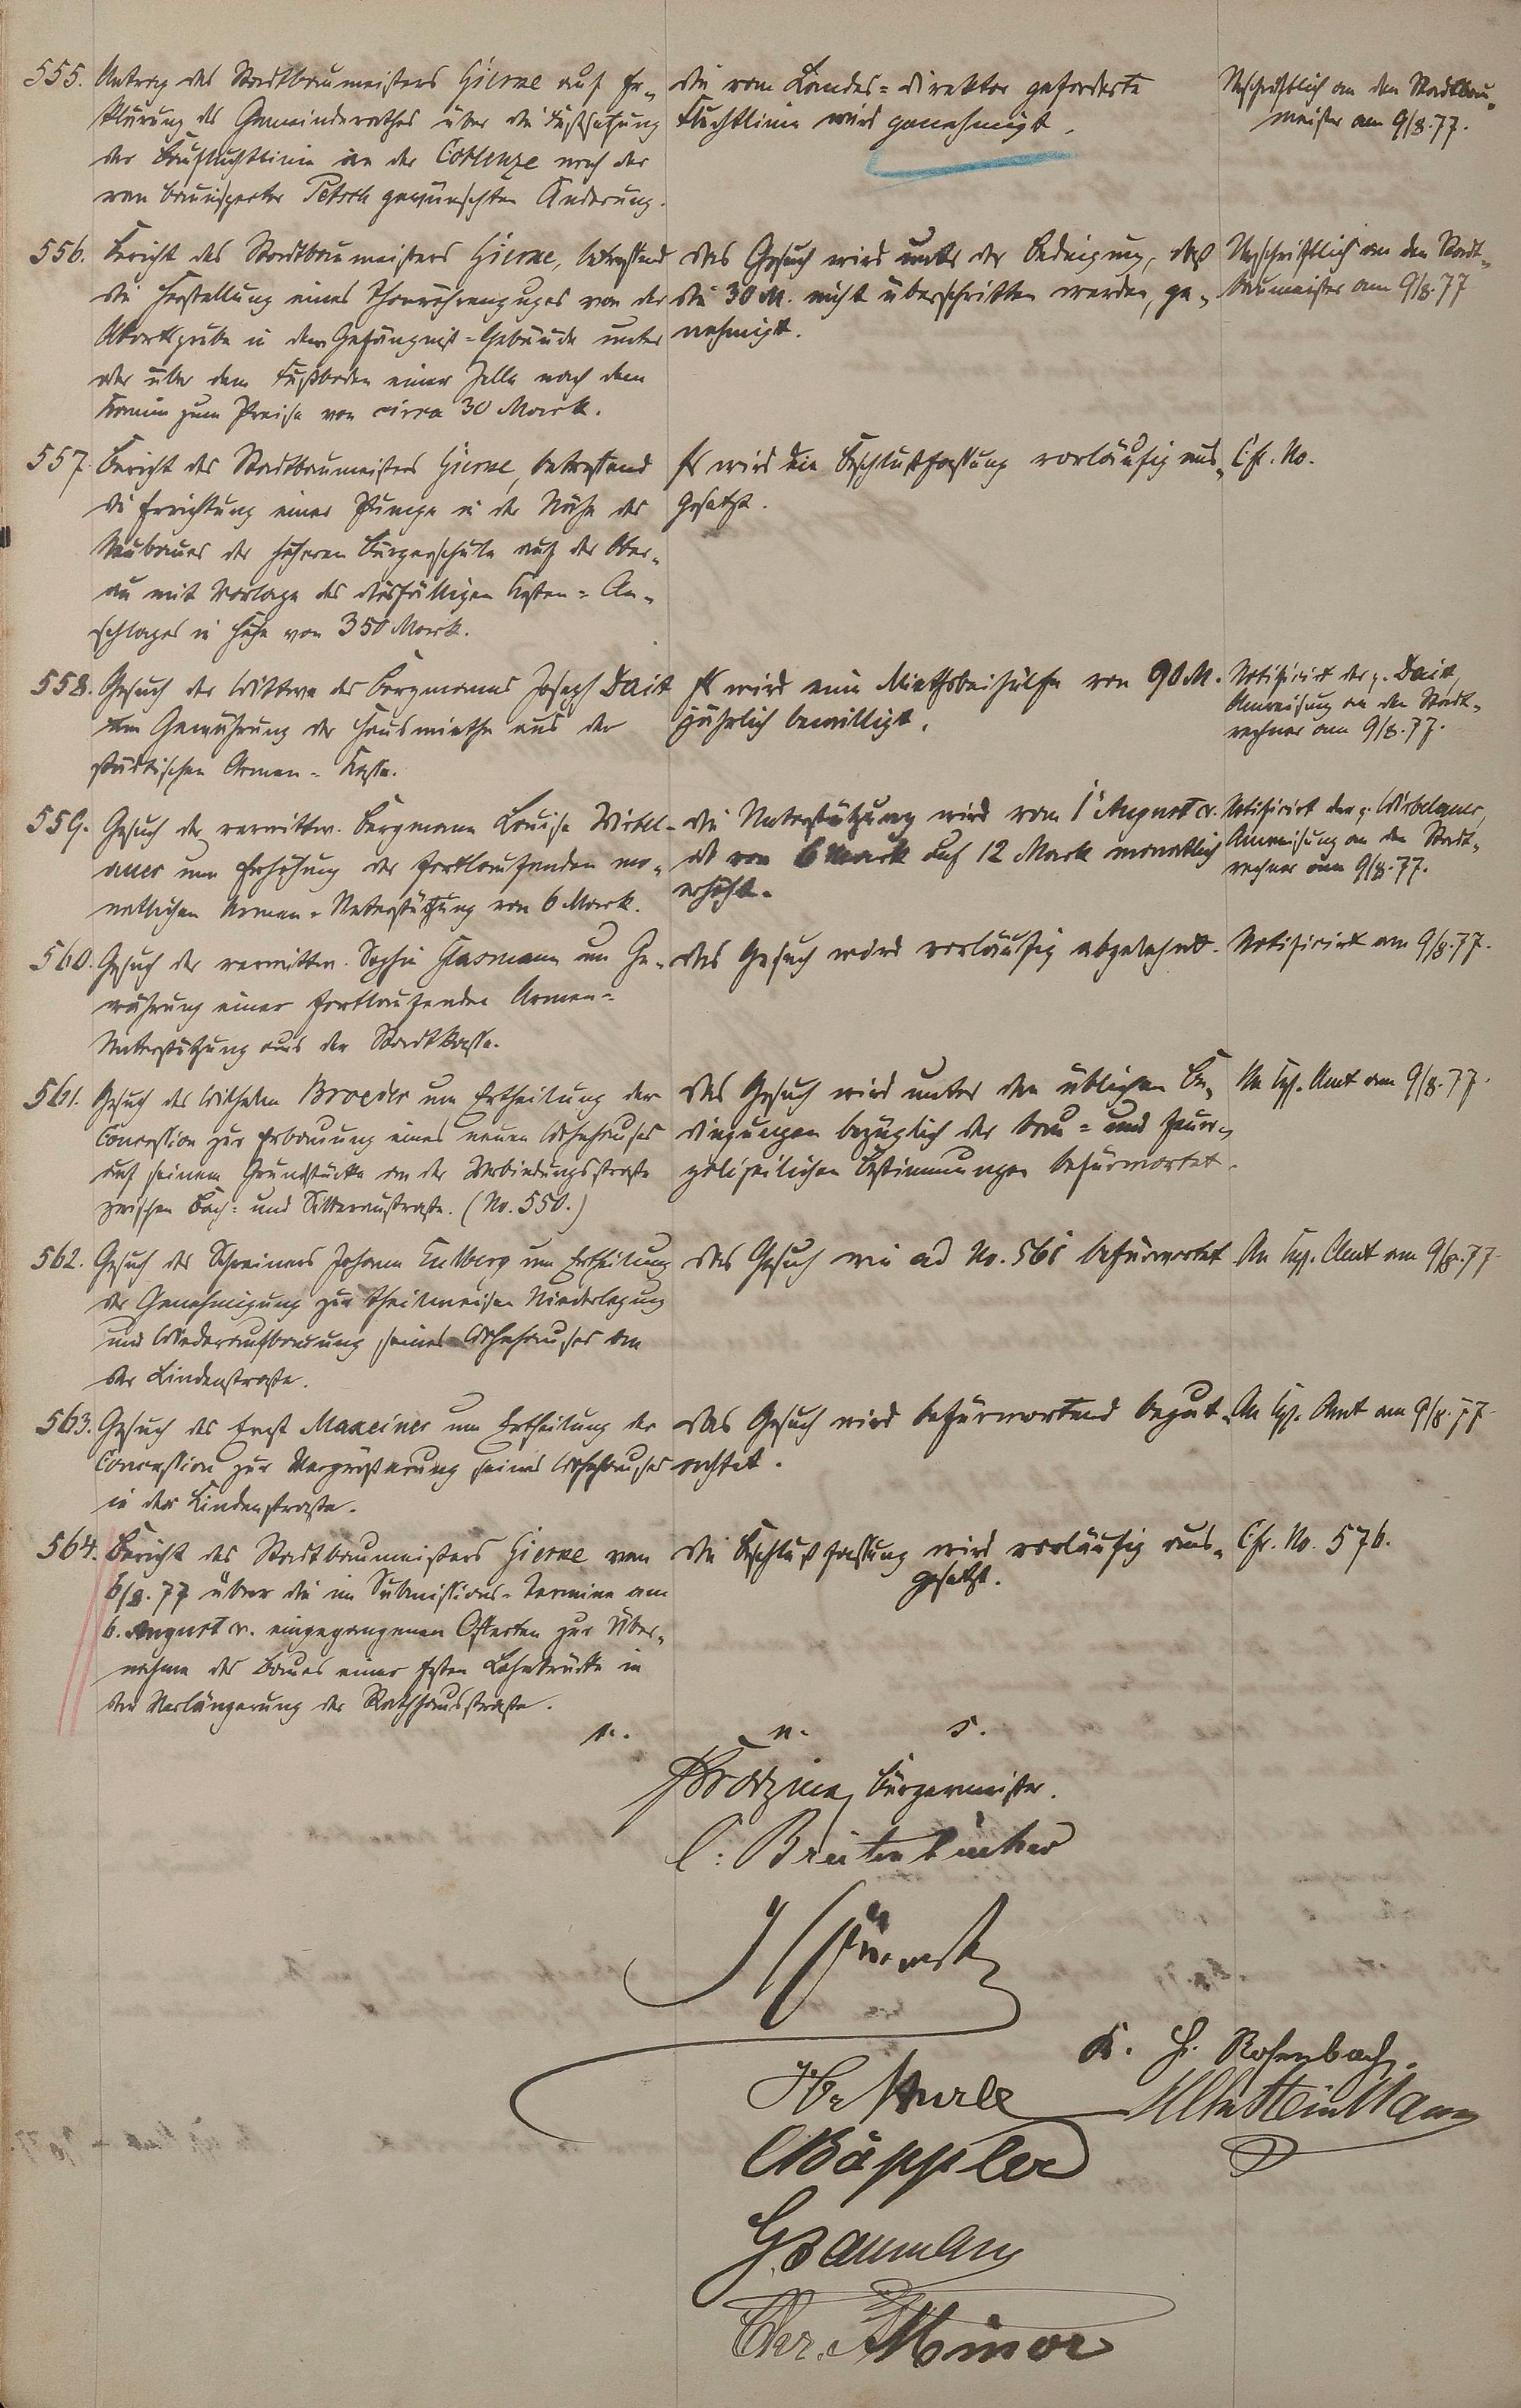 555. Antrag des Stadtbaumeisters Gierne auf Er-
klärung des Gemeinderathes über die Festsetzung
der Baufluchtlinie in der Coblenze nach der
von Bauinspector Petsch gewünschten Änderung.
Die vom Landes-Direktor geforderte
Fluchtlinie wird genehmigt.
Urschriftlich an den Stadtbau-
meister am 9/8.77.
556. Bericht des Stadtbaumeisters Gierne, betreffend
die Herstellung eines Thonröhrenzuges von der
Abortgrube in dem Gefängniß-Gebäude unter
oder über dem Fußboden einer Zelle nach dem
Kamin zum Preise von circa 30 Mark.
Das Gesuch wird unter der Bedingung, daß
die 30 M. nicht überschritten werden, ge-
nehmigt.
Urschriftlich an den Stadt-
baumeister am 9/8.77
557. Bericht des Stadtbaumeisters Gierne, betreffend
die Errichtung einer Pumpe in der Nähe des
Neubaues der höheren Bürgerschule auf der Ober-
au mit Vorlage des desfälligen Kosten-An-
schlages in Höhe von 350 Mark.
Es wird die Beschlußfassung vorläufig aus-
gesetzt.
Cfr. No.
558. Gesuch der Wittwe des Bergmanns Joseph Dait
um Gewährung der Hausmiethe aus der
städtischen Armen-Kasse.
Es wird eine Miethsbeihülfe von 90 M.
jährlich bewilligt.
Notificirt der p. Dait,
Anweisung an den Stadt-
rechner am 9/8.77.
559. Gesuch der verwittw. Bergmann Louise Wirbel-
auer um Erhöhung der fortlaufenden mo-
natlichen Armen-Unterstützung von 6 Mark.
Die Unterstützung wird vom 1. August cr.
ab von 6 Mark auf 12 Mark monatlich
erhöht.
Notificirt der p. Wirbelauer,
Anweisung an den Stadt-
rechner am 9/8.77.
560. Gesuch der verwittw. Sophie Glasmann um Ge-
währung einer fortlaufenden Armen-
Unterstützung aus der Stadtkasse.
Das Gesuch wird vorläufig abgelehnt.
Notificirt am 9/8.77.
561. Gesuch des Wilhelm Broeder um Ertheilung der
Concession zur Erbauung eines neuen Wohnhauses
auf seinem Grundstücke an der Verbindungsstraße
zwischen Bach- und Sitteraustraße. (No. 550.)
Das Gesuch wird unter den üblichen Be-
dingungen bezüglich der bau- und feuer-
polizeilichen Bestimmungen befürwortet.
An Kgl. Amt am 9/8.77.
562. Gesuch des Schreiners Johann Entberg um Ertheilung
der Genehmigung zur theilweisen Niederlegung
und Wiederaufbauung seines Wohnhauses an
der Lindenstraße.
Das Gesuch wie ad No. 561 befürwortet
An Kgl. Amt am 9/8.77.
563. Gesuch des Ernst Maxeiner um Ertheilung der
Concession zur Vergrößerung seines Wohnhauses
in der Lindenstraße.
Das Gesuch wird befürwortend begut-
achtet.
An Kgl. Amt am 9/8.77.
564. Bericht des Stadtbaumeisters Gierne vom
6/8.77 über die im Submissions-Termine am
6. August cr. eingegangenen Offerten zur Über-
nahme des Baues einer festen Lahnbrücke in
der Verlängerung der Rathhausstraße.
Die Beschlußfassung wird vorläufig aus-
gesetzt.
Cfr. No. 576.
v. u. s.
Bürgermeister.
C. Breitenbücher
K. H. Rosenbach
Käppler
G. Baumann
Chr. Minor